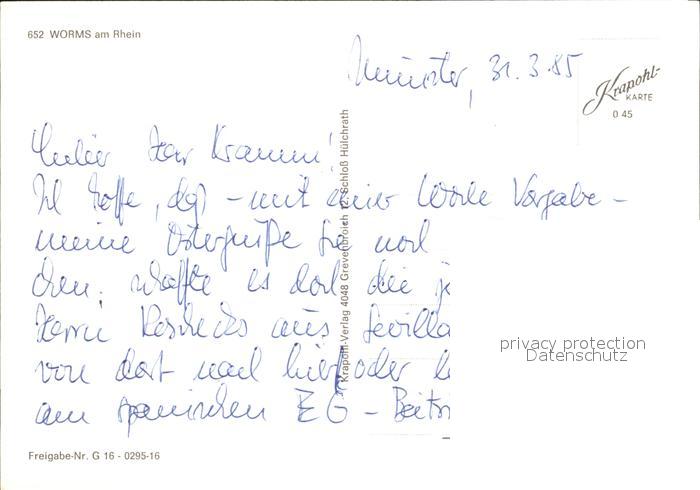 652 WORMS am Rhein
Münster, 31.3.85
Krapohl-
KARTE
0 45
Lieber Herr Kramm!
Ich hoffe, daß – mit einer Woche Vorgabe –
meine Ostergrüße Sie noch
chen. schaffte es doch die j
aus Sevilla
von dort nach hier oder
am spanischen EG – Beitri
© Krapohl-Verlag 4048 Grevenbroich 12, Schloß Hülchrath
privacy protection
Datenschutz
Freigabe-Nr. G 16 - 0295-16